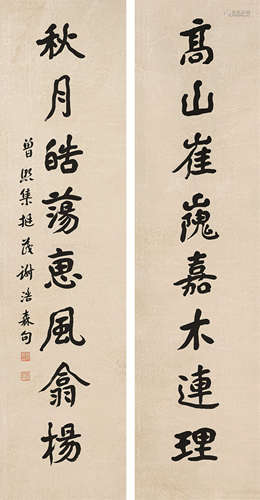 高山崔巍嘉木連理
秋月皓蕩惠風翕楊
曾熙集挺茂謝浩森句